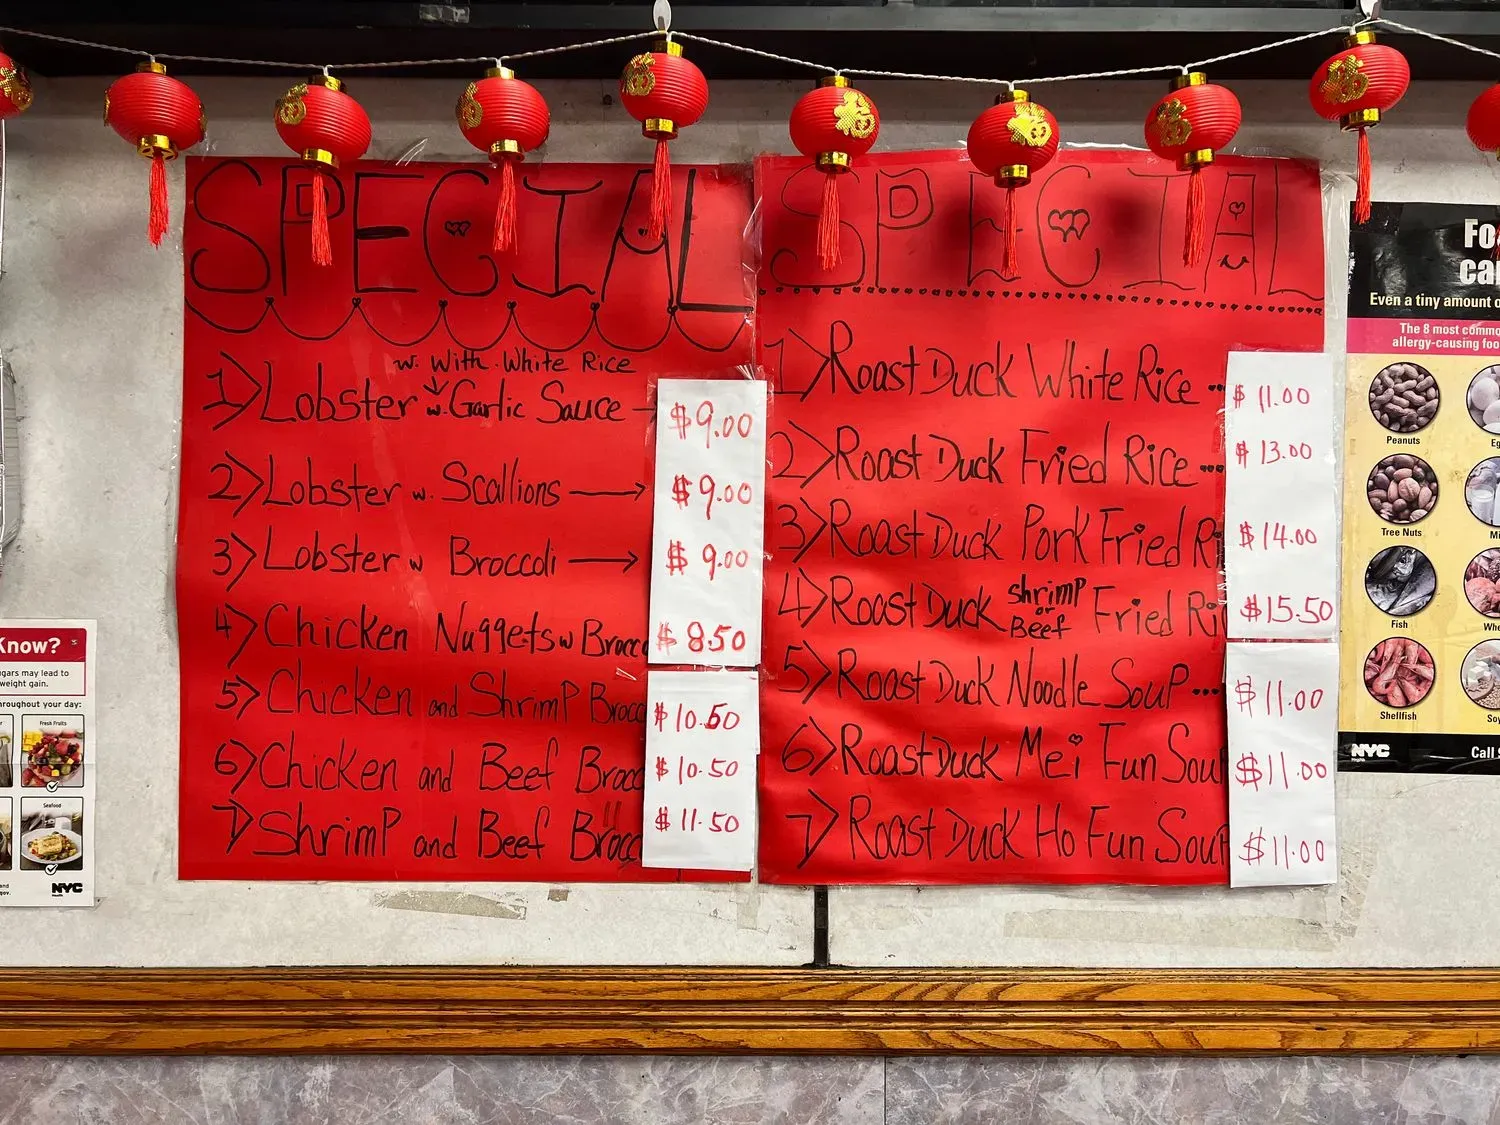 SPECIAL
w. With White Rice
1) Lobster w. Garlic Sauce $9.00
2) Lobster w. Scallions $9.00
3) Lobster w Broccoli $9.00
4) Chicken Nuggets w Brocc $8.50
5) Chicken and Shrimp Brocc $10.50
6) Chicken and Beef Brocc $10.50
7) Shrimp and Beef Brocc $11.50
SPECIAL
1) Roast Duck White Rice ... $11.00
2) Roast Duck Fried Rice ... $13.00
3) Roast Duck Pork Fried Ri $14.00
4) Roast Duck Shrimp or Beef Fried Ri $15.50
5) Roast Duck Noodle Soup ... $11.00
6) Roast Duck Mei Fun Soup $11.00
7) Roast Duck Ho Fun Soup $11.00
Know?
ugars may lead to
weight gain.
hroughout your day:
Fresh Fruits
Seafood
and
gov.
NYC
Fo
ca
Even a tiny amount o
The 8 most commo
allergy-causing foo
Peanuts
Eg
Tree Nuts
Mi
Fish
Whe
Shellfish
Soy
NYC
Health
Call